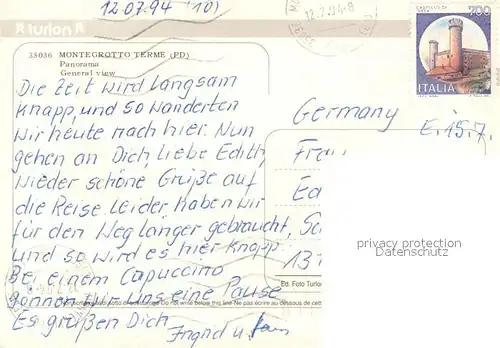 12.07.94 (10)
turlon
35036 MONTEGROTTO TERME (PD)
Panorama
General view
CASTELLO DI
700
ITALIA
Die Zeit wird langsam
knapp, und so wanderten
wir heute nach hier. Nun
gehen an Dich, liebe Edith,
wieder schöne Grüße auf
die Reise. Leider haben wir
für den Weg länger gebraucht,
und so wird es hier knapp.
Bei einem Capuccino
gönnen wir uns eine Pause
Es grüßen Dich
Ingrid u.
Germany
E. 15.7.
Frau
Ed
13
privacy protection
Datenschutz
Ed. Foto Turlon
not write below this line Ne rien écrire au dessous de cette